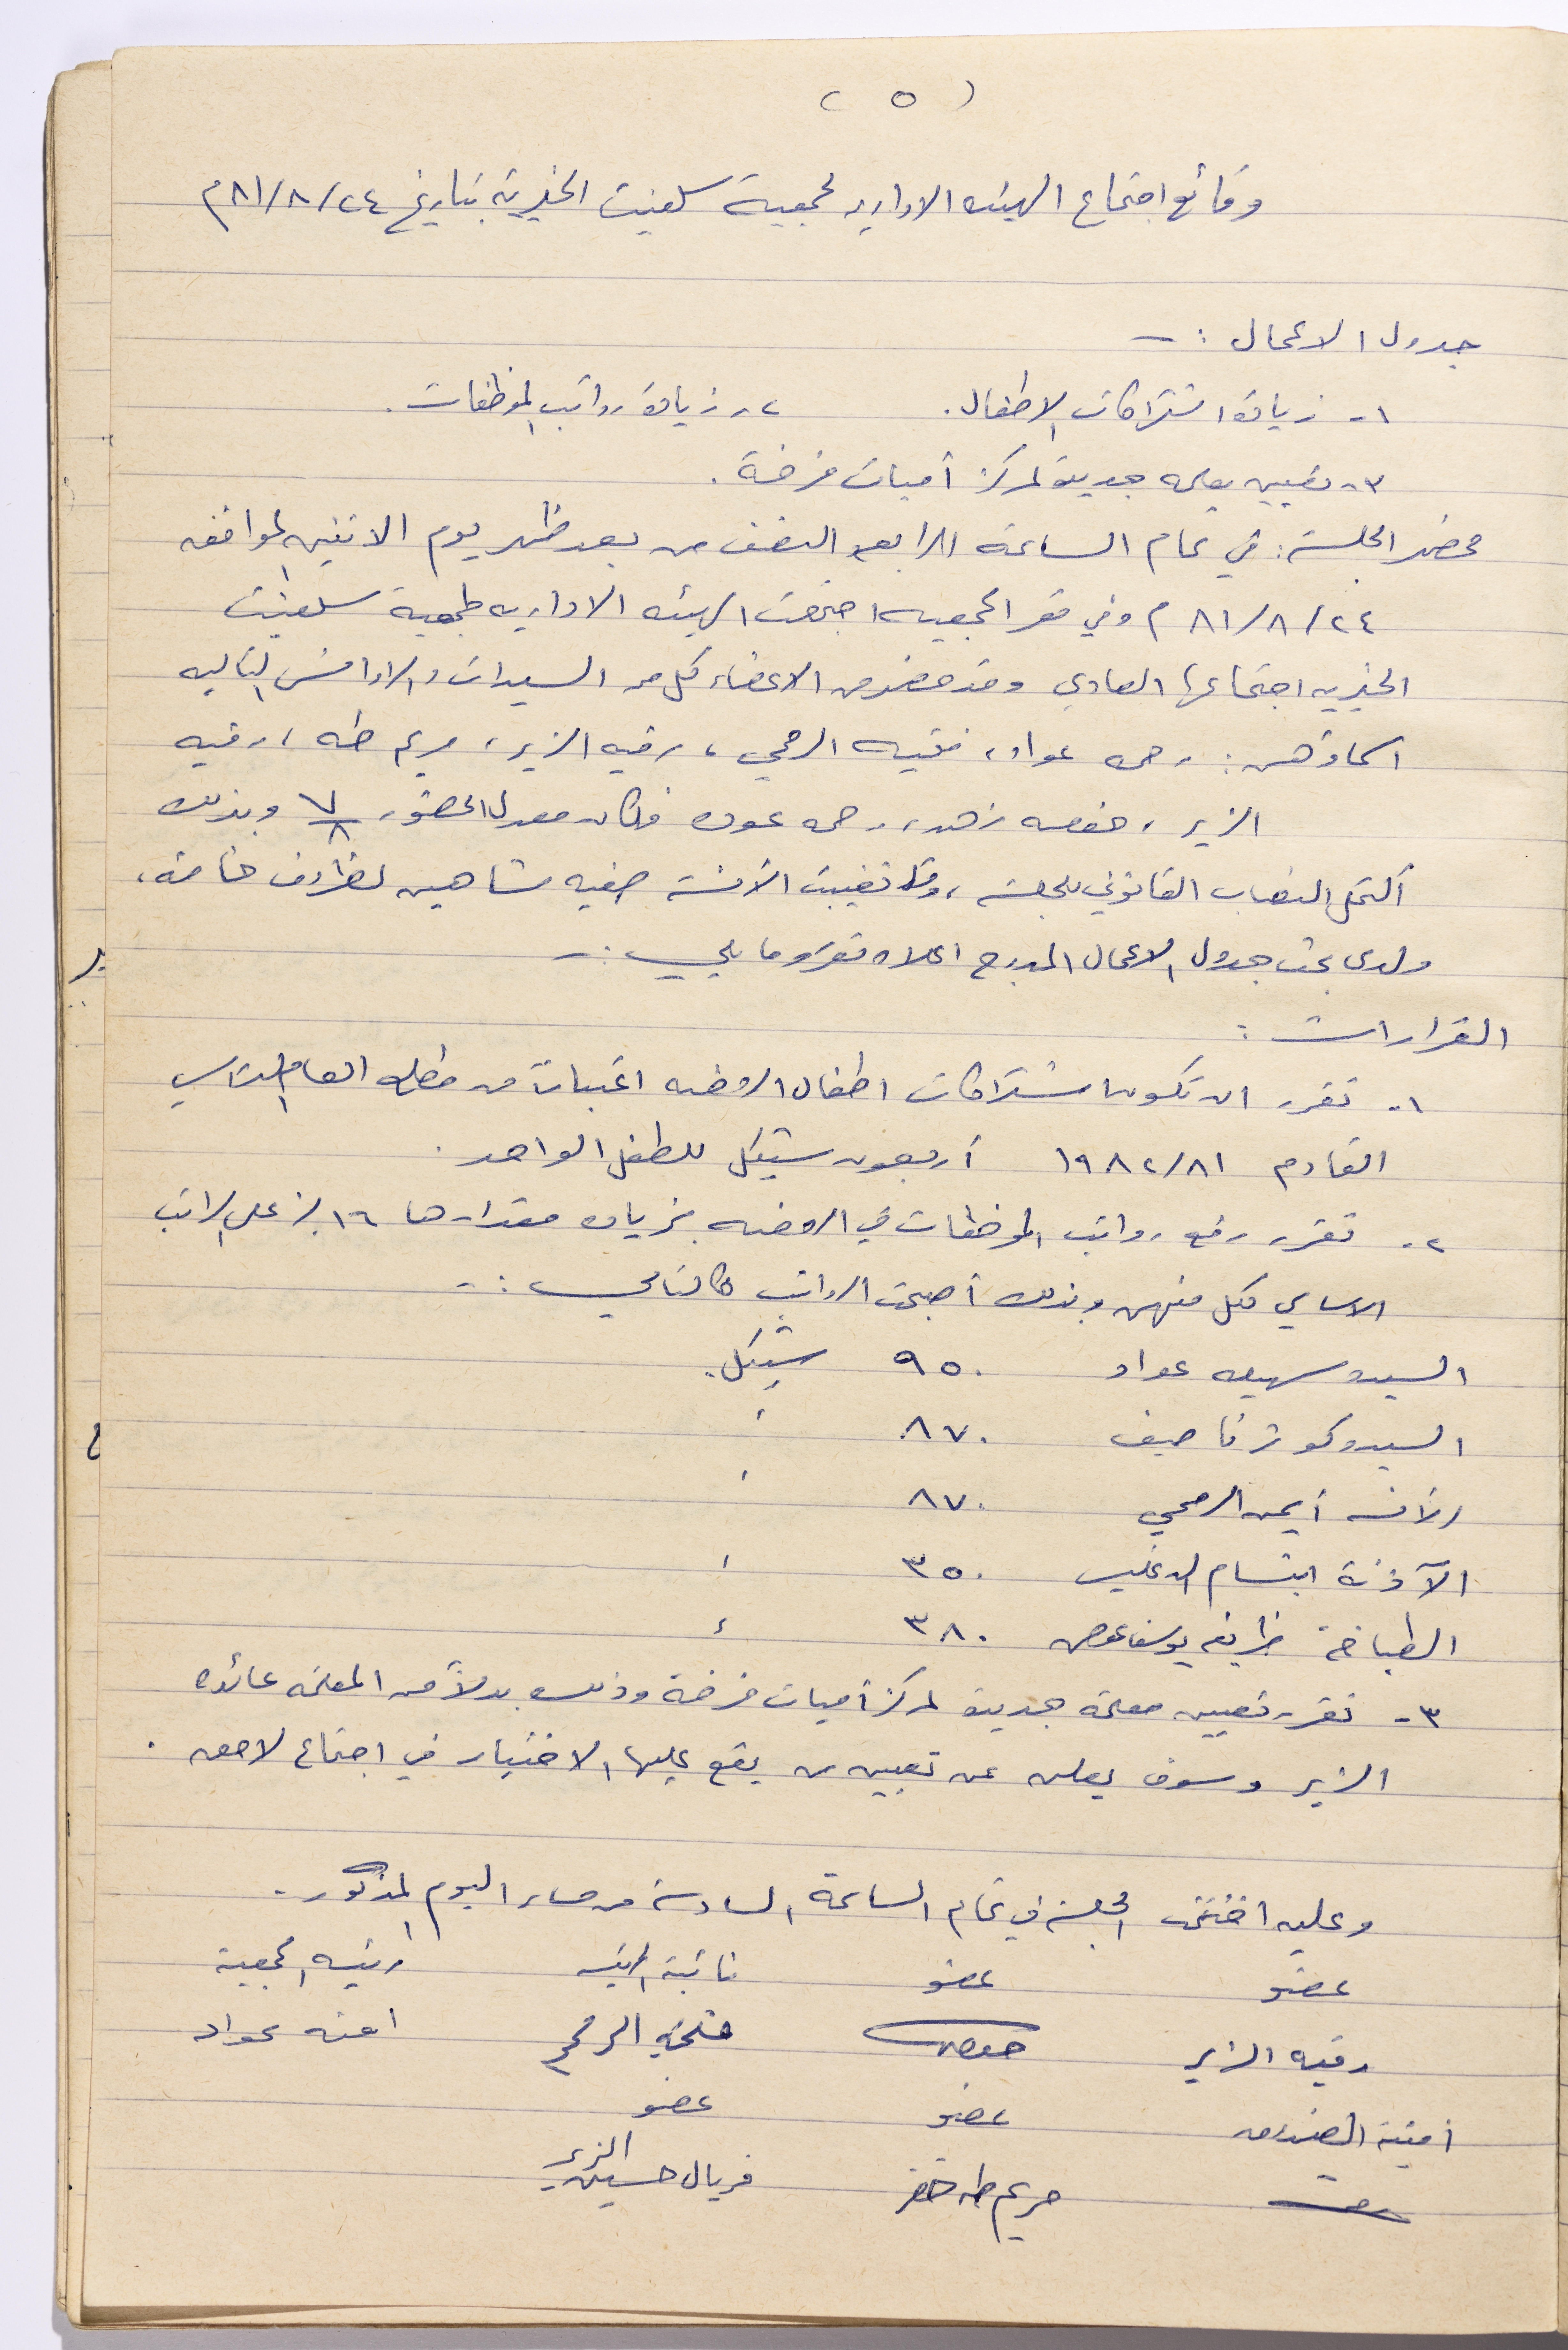 ( ٥ )
وقائع اجتماع الهيئه الاداريه لجمعية سلفيت الخيرية بتاريخ ٨١/٨/٢٤م
جدول الاعمال : -
١- زيادة اشتراكات الاطفال. ٢- زيادة رواتب الموظفات.
٣- تعيين معلمه جديدة لمركز أميات فرخة.
محضر الجلسة : في تمام الساعة الرابعة والنصف من بعد ظهر يوم الاثنين الموافق
٨١/٨/٢٤م وفي مقر الجمعيه اجتمعت الهيئه الاداريه لجمعية سلفيت
الخيريه اجتماعها العادي وقد حضر من الاعضاء كل من السيدات والاوانس التاليه
اسماؤهن : رحمه عواد، فتحيه الرمحي، رقيه الزير، مريم طه، رقيه
الزير، حفصه زهد، رحمه عوده فكان معدل الحضور ٧/٨ وبذلك
أكتمل النصاب القانوني للجلسة، وقد تغيبت الآنسة صفيه شاهين لظروف خاصة،
ولدى بحث جدول الاعمال المدرج اعلاه تقرر ما يلي :-
القرارات :
١- تقرر ان تكون اشتراكات اطفال الروضه اعتبارا من مطلع العام الدراسي
القادم ١٩٨٢/٨١ أربعون شيكل للطفل الواحد.
٢- تقرر رفع رواتب الموظفات في الروضه بزياده مقدارها ١٦٪ على الراتب
الاساسي لكل منهن وبذلك أصبحت الرواتب كالتالي :-
السيده سهيله عواد ٩٥٠ شيكل.
السيده كوثر ناصيف ٨٧٠ "
الآنسه أيمن الرمحي ٨٧٠ "
الآذنة ابتسام الدغليس ٣٥٠ "
الطباخة ظريفه يوسف عوض ٣٨٠ "
٣- تقرر تعيين معلمة جديدة لمركز أميات فرخة وذلك بدلاً من المعلمه عائده
الزير وسوف يعلن عن تعيين من يقع عليها الاختيار في اجتماع لاحق.
وعليه اختتمت الجلسة في تمام الساعة السادسة من مساء اليوم المذكور.
عضو عضو نائبة الرئيسه رئيسه الجمعية
رقيه الزير حفصه فتحيه الرمحي امنه عواد
أمينة الصندوق عضو عضو
مريم طه خفر فريال حسين الزير